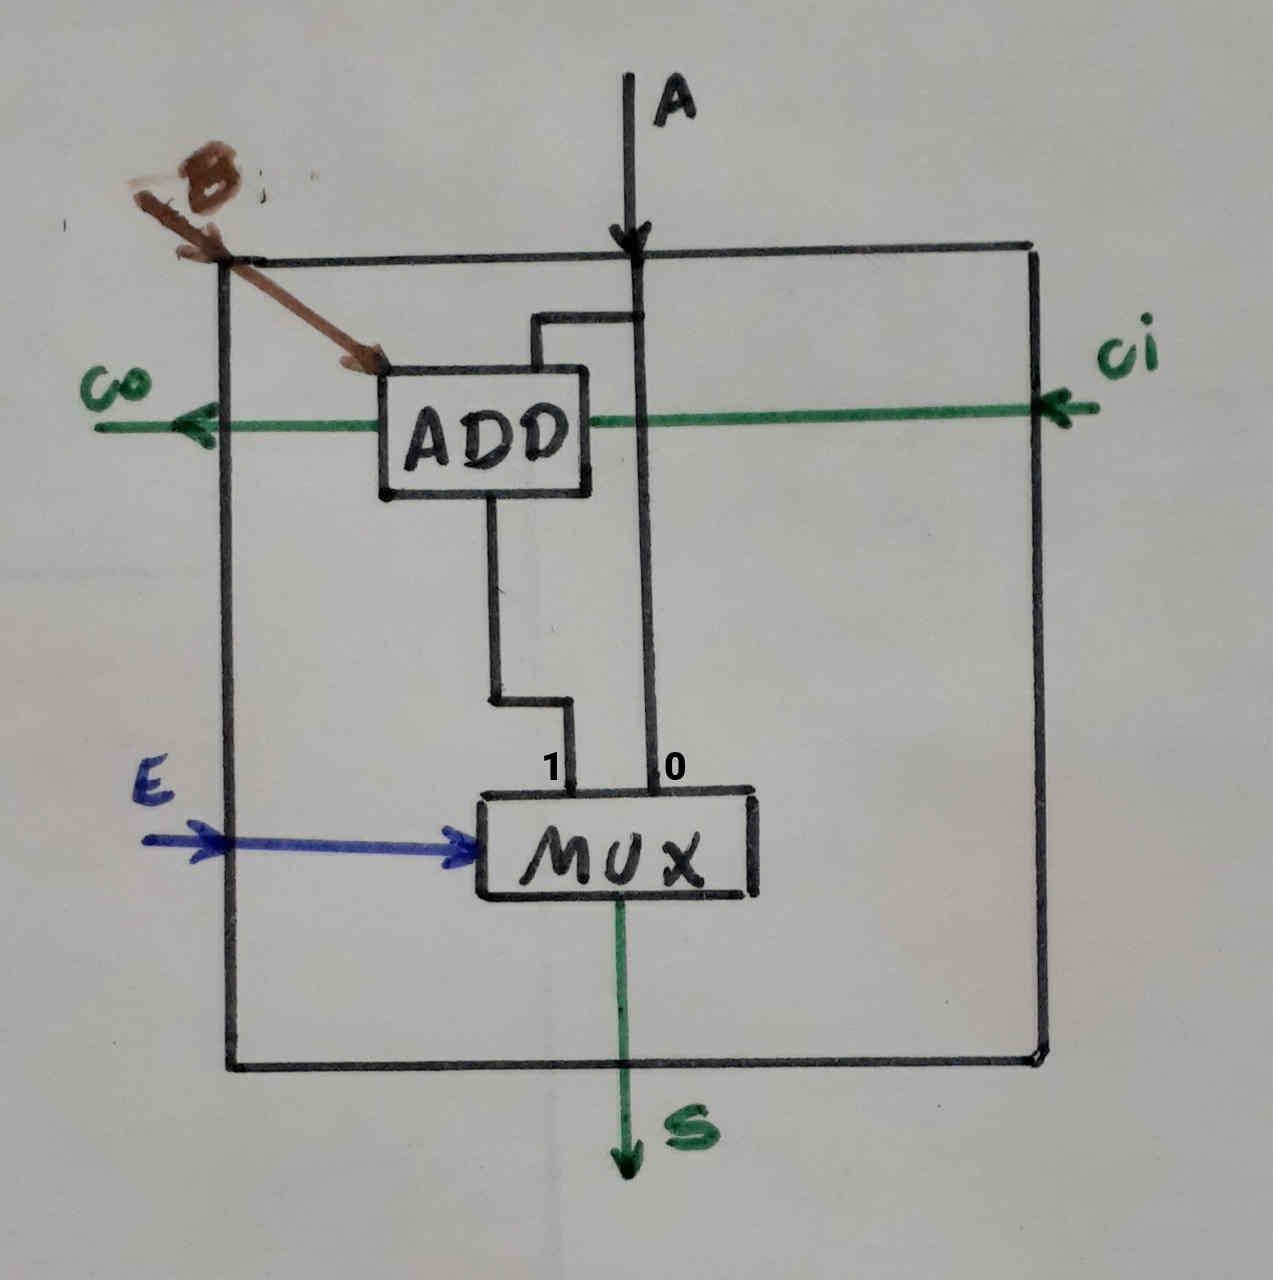 A
B
co
ci
ADD
1
0
E
MUX
S